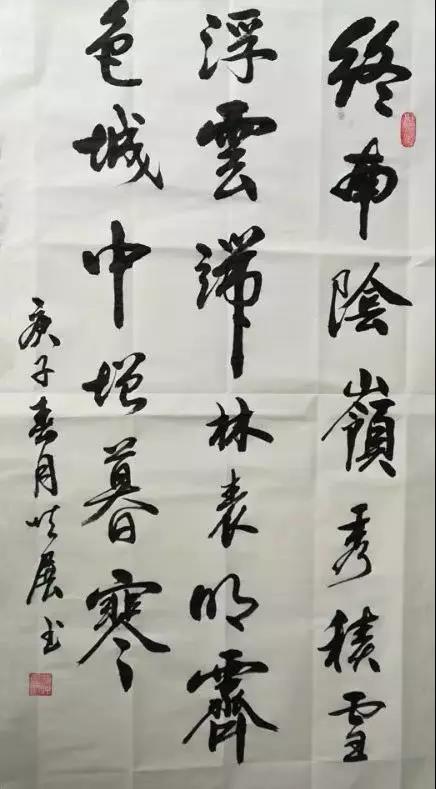 終南陰嶺秀積雪
浮雲端林表明霽
色城中增暮寒
庚子春月